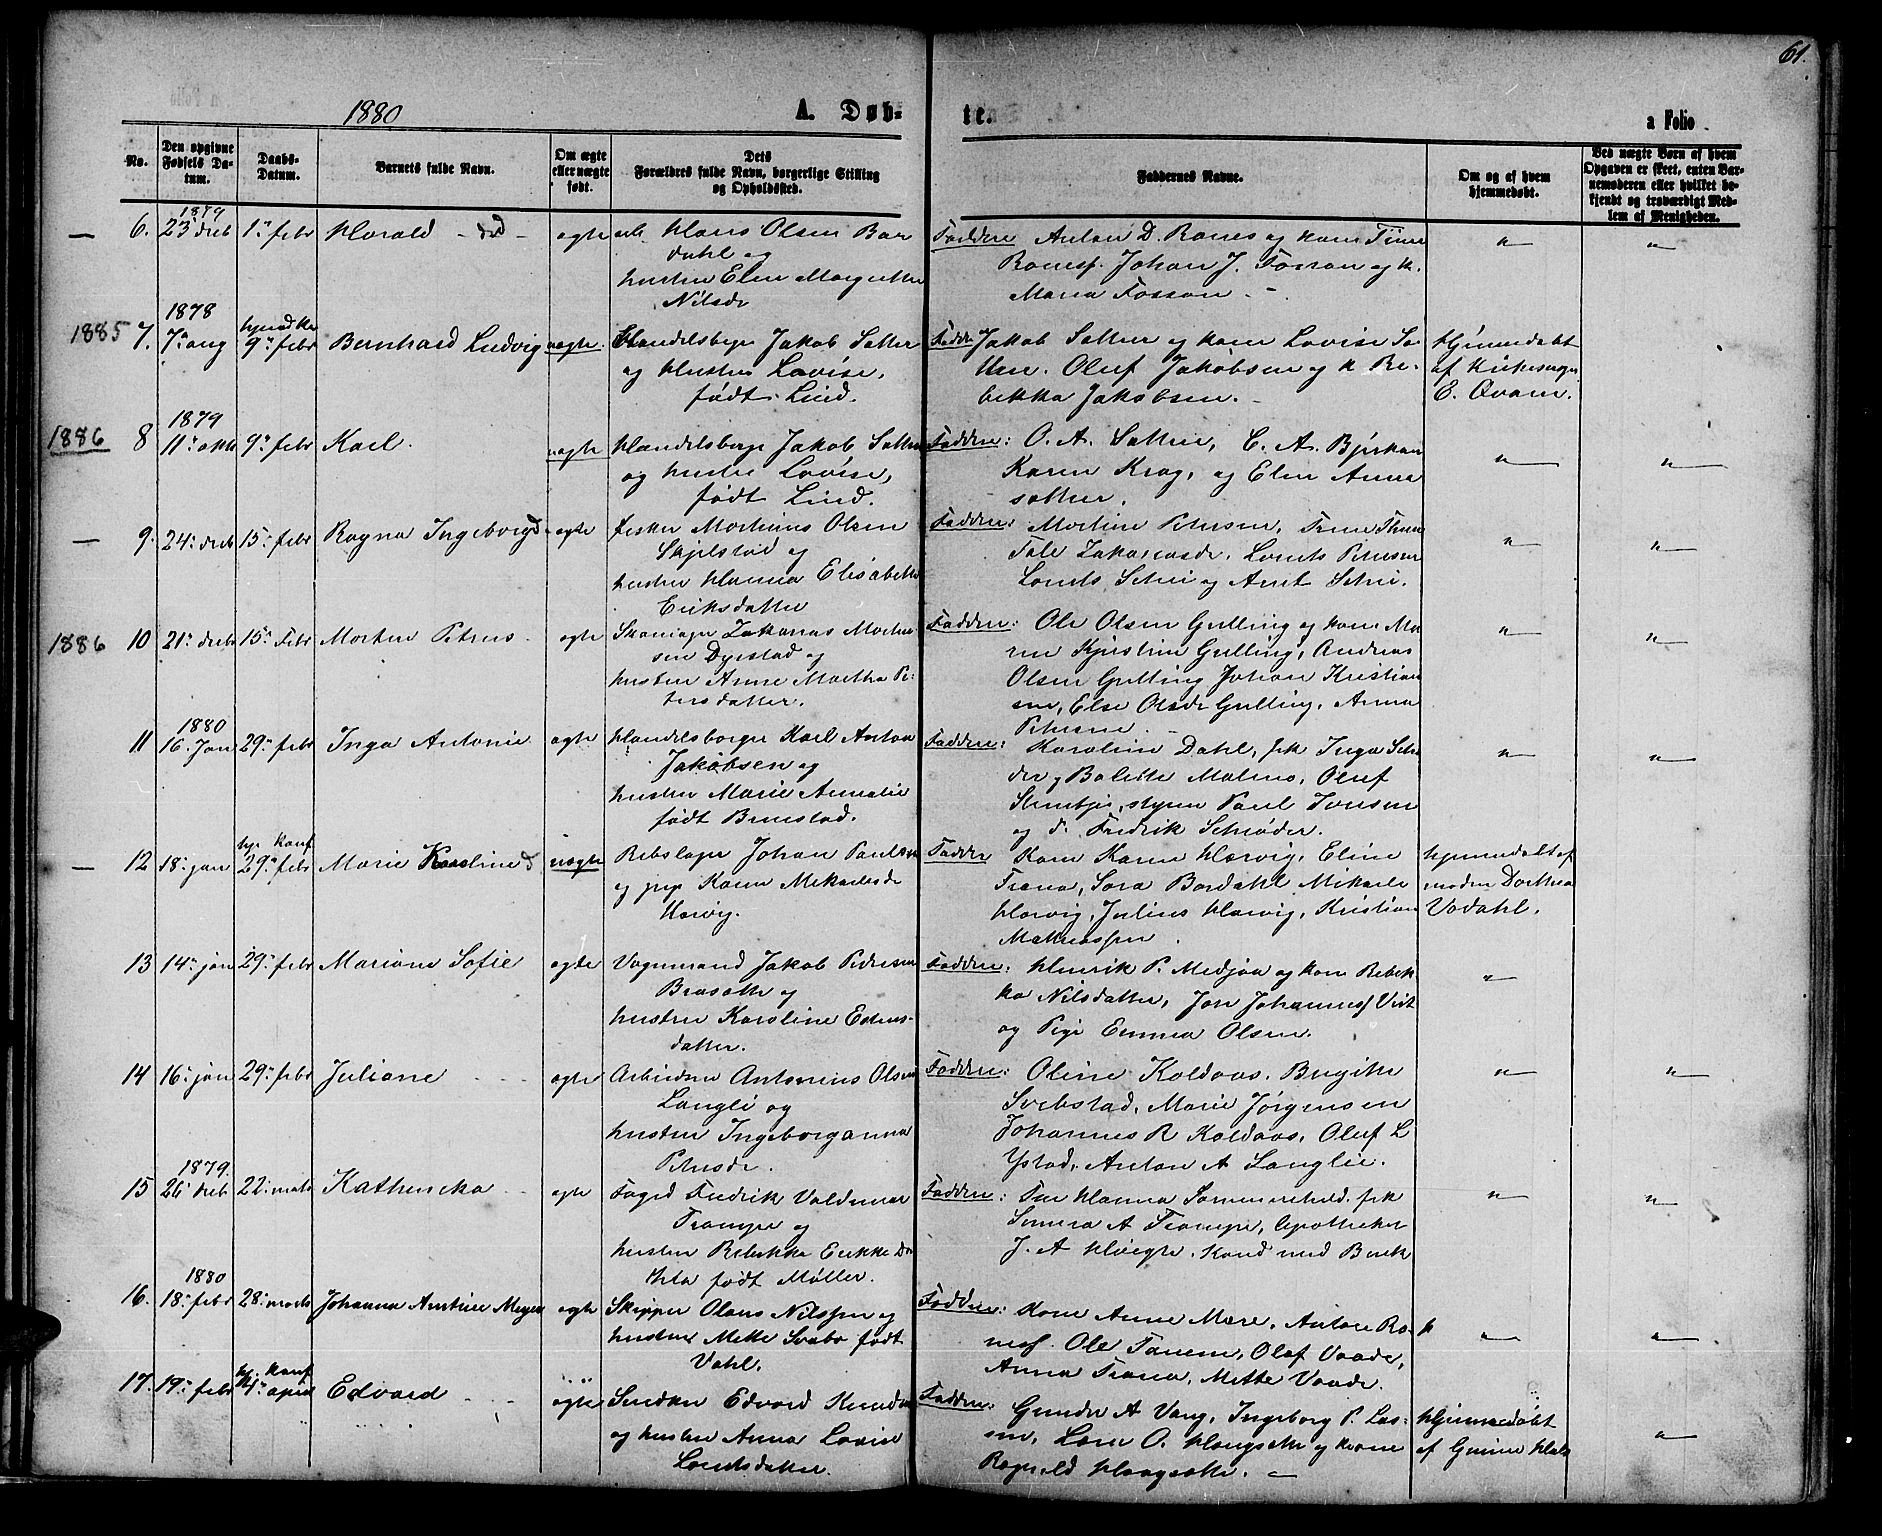 61.
1880
A. Døb-
te.
a Folio
No.
Den opgivne Fødsels Datum.
Daabs-Datum.
Barnets fulde Navn.
Om ægte eller uægte født.
Dets Forældres fulde Navn, borgerlige Stilling og Opholdssted.
Faddernes Navne.
Om og af hvem hjemmedøbt.
Ved uægte Børn af hvem Opgaven er skeet, enten Barnemoderen eller hvilket bekjendt og troværdigt Medlem af Menigheden.
1879
— 6. 23 dcb 1ste febr Harald ægte arb. Hans Olsen Bar
dahl og
hustru Elen Margrethe
Nilsdr
Faddere Anton D. Ranes og kone Tine
Ranes. Johan J. Fossan og k.
Maria Fossan.
1878
1885 7. 7de aug 9de febr Bernhard Ludvig uægte Handelsbgr Jakob Sæther
og Hustru Lovise,
født Lind.
Fadd Jakob Sæther og kone Lovise Sæ
ther. Oluf Jakobsen og k Re-
bekka Jakobsen.
Hjemmedøbt
af Kirkesanger
E. Qvam.
1879
1886 8 11te okt 9de febr Karl. uægte Handelsborgr Jakob Sæther
og hustru Lovise,
født Lind.
Faddere: O. A. Sæther, C. A. Bjørkan
Karen Krog, og Elen Anna
sæther.
— 9. 24de dcb 15de febr Ragna Ingeborg ægte fisker Mortinus Olsen
Skjelstad og
hustru Hanna Elisabeth
Eriksdatter
Faddere: Martin Petersen,
Zakariasdr. Lorents Petersen
Lorents og Arnt
1886 10 21de dcbr 15de Febr Morten Petrus ægte Zakarias Morten
sen Dyrstad og
hustru Anne Martha Pe-
tersdatter.
Faddere: Ole Olsen Gulling og kone Ma
ren Kjerstine Gulling, Andreas
Olsen Gulling Johan Kristian
sen, Else Olsdr Gulling, Anna
Petersen.
1880
11 16. Jan 29de febr Inga Antonie ægte Handelsborger Karl Anton
Jakobsen og
hustru Marie Amalie
født Brunstad.
Faddere: Karoline Dahl, frk Inga
og Bolette Malmo, Oluf
styrm Paul Jonsen
og F. Fredrik Schrøder.
— 12 18de jan 29de febr Marie Karoline uægte Rebslager Johan Paulsen
og pige Karen Mikaelsdr
Harvig.
Faddere Kone Karen Harvig, Eline
Trana, Sara Bardahl Mikael
Harvig, Julius Harvig, Kristian
Mathiassen.
hjemmedøbt af
moder Dorthea
Vodahl.
13 14de jan 29de febr Mariane Sofie ægte Vognmand Jakob Pedersen
Brasøtte og
hustru Karoline Edvens-
datter.
Faddere: Henrik P. Medjaa og kone Rebek
ka Nilsdatter, Jon Johannes Vist
og Pige Emma Olsen.
14 16de jan 29de febr Juliane ægte Arbeider Antonius Olsen
Langli og
hustru Ingeborganna
Petersdr.
Faddere: Oline Koldaas. Birgithe
Svebstad, Marie Jørgensen
Johannes R Koldaas, Oluf L
Ystad, Anton A Langlie.
1879.
15 26de dcb 22de marts Kathencka ægte Foged Fredrik Valdemar
Trampe og
hustru Rebekka Erikke Do
thea født Møller.
Faddere: Hanna Sommerschild, frk
A Trampe, Apotheker
J. A Høegh, Kand med
1880
16. 18de febr 28de marts Johanna Antine Meyer ægte Skipper Olaus Nilssen og
hustru Mette Svabo født
Vahl.
Faddere: Kone Anne Mære, Anton Ra-
nes. Ole Tanem, Olaf Vaade,
Anna Trana, Mette Vaade.
17. 19de febr 4de april Edvard ægte Snedker Edvard Knudsen
og hustru Anna Lovise
Lorentsdatter.
Faddere: Gunder A Vang, Ingeborg P. Las-
sen, Lars O. Haugsætte og kone
Ragnhild Haugsætte.
Hjemmedøbt
af